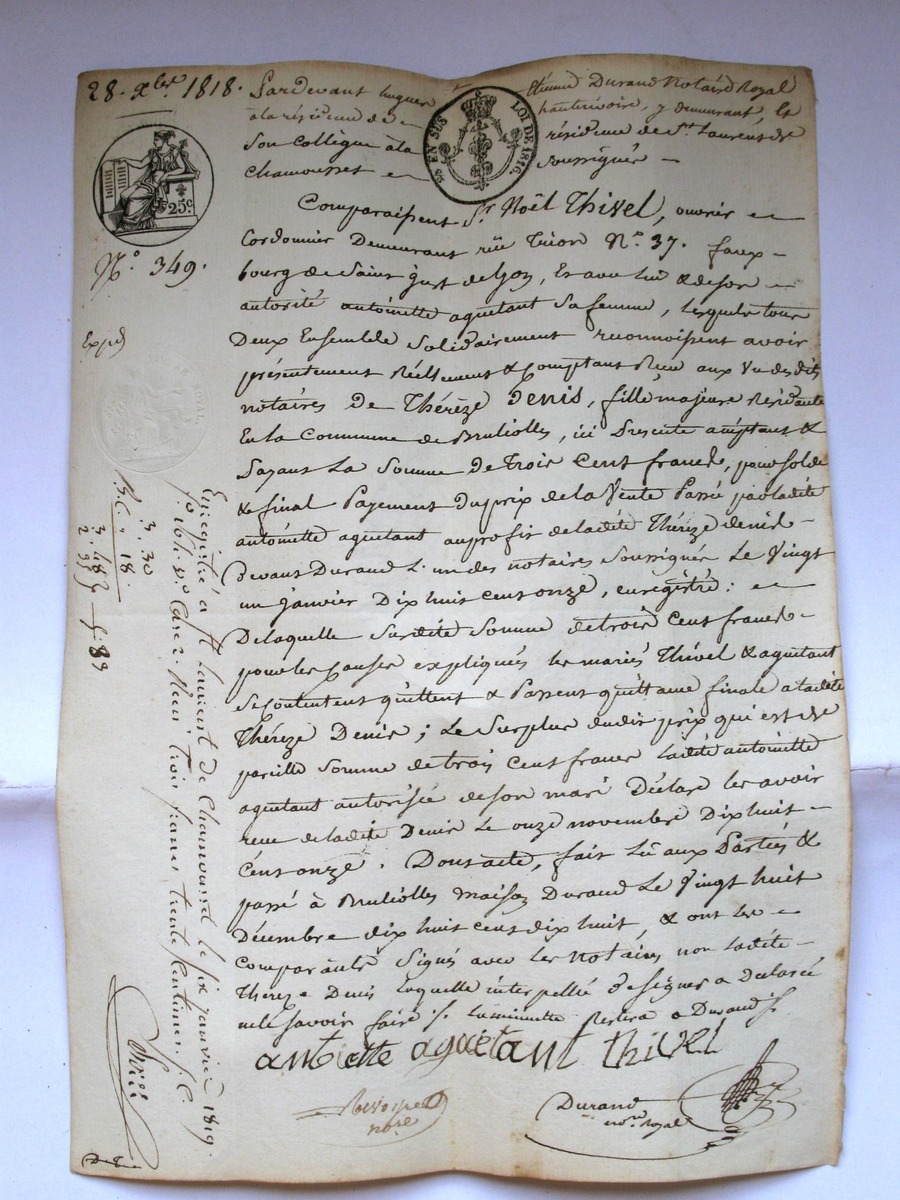 28. Xbre. 1818.
Pardevant hugues Etienne Durand Notaire Royal
à la résidence de hauterivoire, y demeurant, Et
Son Collègue à la résidence de St. Laurent de
Chamousset Soussignés
EN SUS
LOI DE 1816.
25 c.
N°. 349.
Expié
Comparaissent Sr. Noël Thivel, ouvrier
Cordonnier Demeurant rüe Trion N°. 37. faux-
bourg de Saint just de Lyon, Et avec lui & de son
autorité antoinette aguetant Sa femme, Lesquels tous
Deux Ensemble Solidairement reconnoissent avoir
présentement Réellement & Comptant Reçu aux Vu des dits
notaires De Thérèze Denis, fille majeure Résidante
En la Commune de Bruliolles, ici Présente acceptant &
Payant La Somme De trois Cent francs, pour Solde
& final Payement Du prix de la Vente Passé par ladite
antoinette aguetant au profit de ladite Thérèze denis
Devant Durand L'un des notaires Soussignés Le Vingt
un janvier Dix huit cent onze, enregistré:
De laquelle Susdite Somme de trois Cent francs
pour les Causes expliqués les mariés Thivel & aguetant
Se Contentent quittent & Passent quittance finale a ladite
Thérèze Denis; Le Surplus dudit prix qui est de
pareille Somme de trois Cent francs Ladite antoinette
aguetant autorisée de son mari Déclare les avoir
reçu de ladite Denis Le onze novembre Dix huit
Cent onze. Dont acte, fait Lu aux Parties &
passé à Brulliolles maison Durand Le Vingt huit
Décembre dix huit cent dix huit, & ont les
Comparants Signés avec Les Notaires non Ladite
Thereze Denis Laquelle interpellée De Signer a Déclarée
ne le Savoir faire /. La minutte Restera a Durand /.
antoinette aguetant thivel
Durand
nore. royal
nore.
Enregistré à St Laurent de Chamousset le six janvier 1819.
trois francs trente Centimes
3. 30